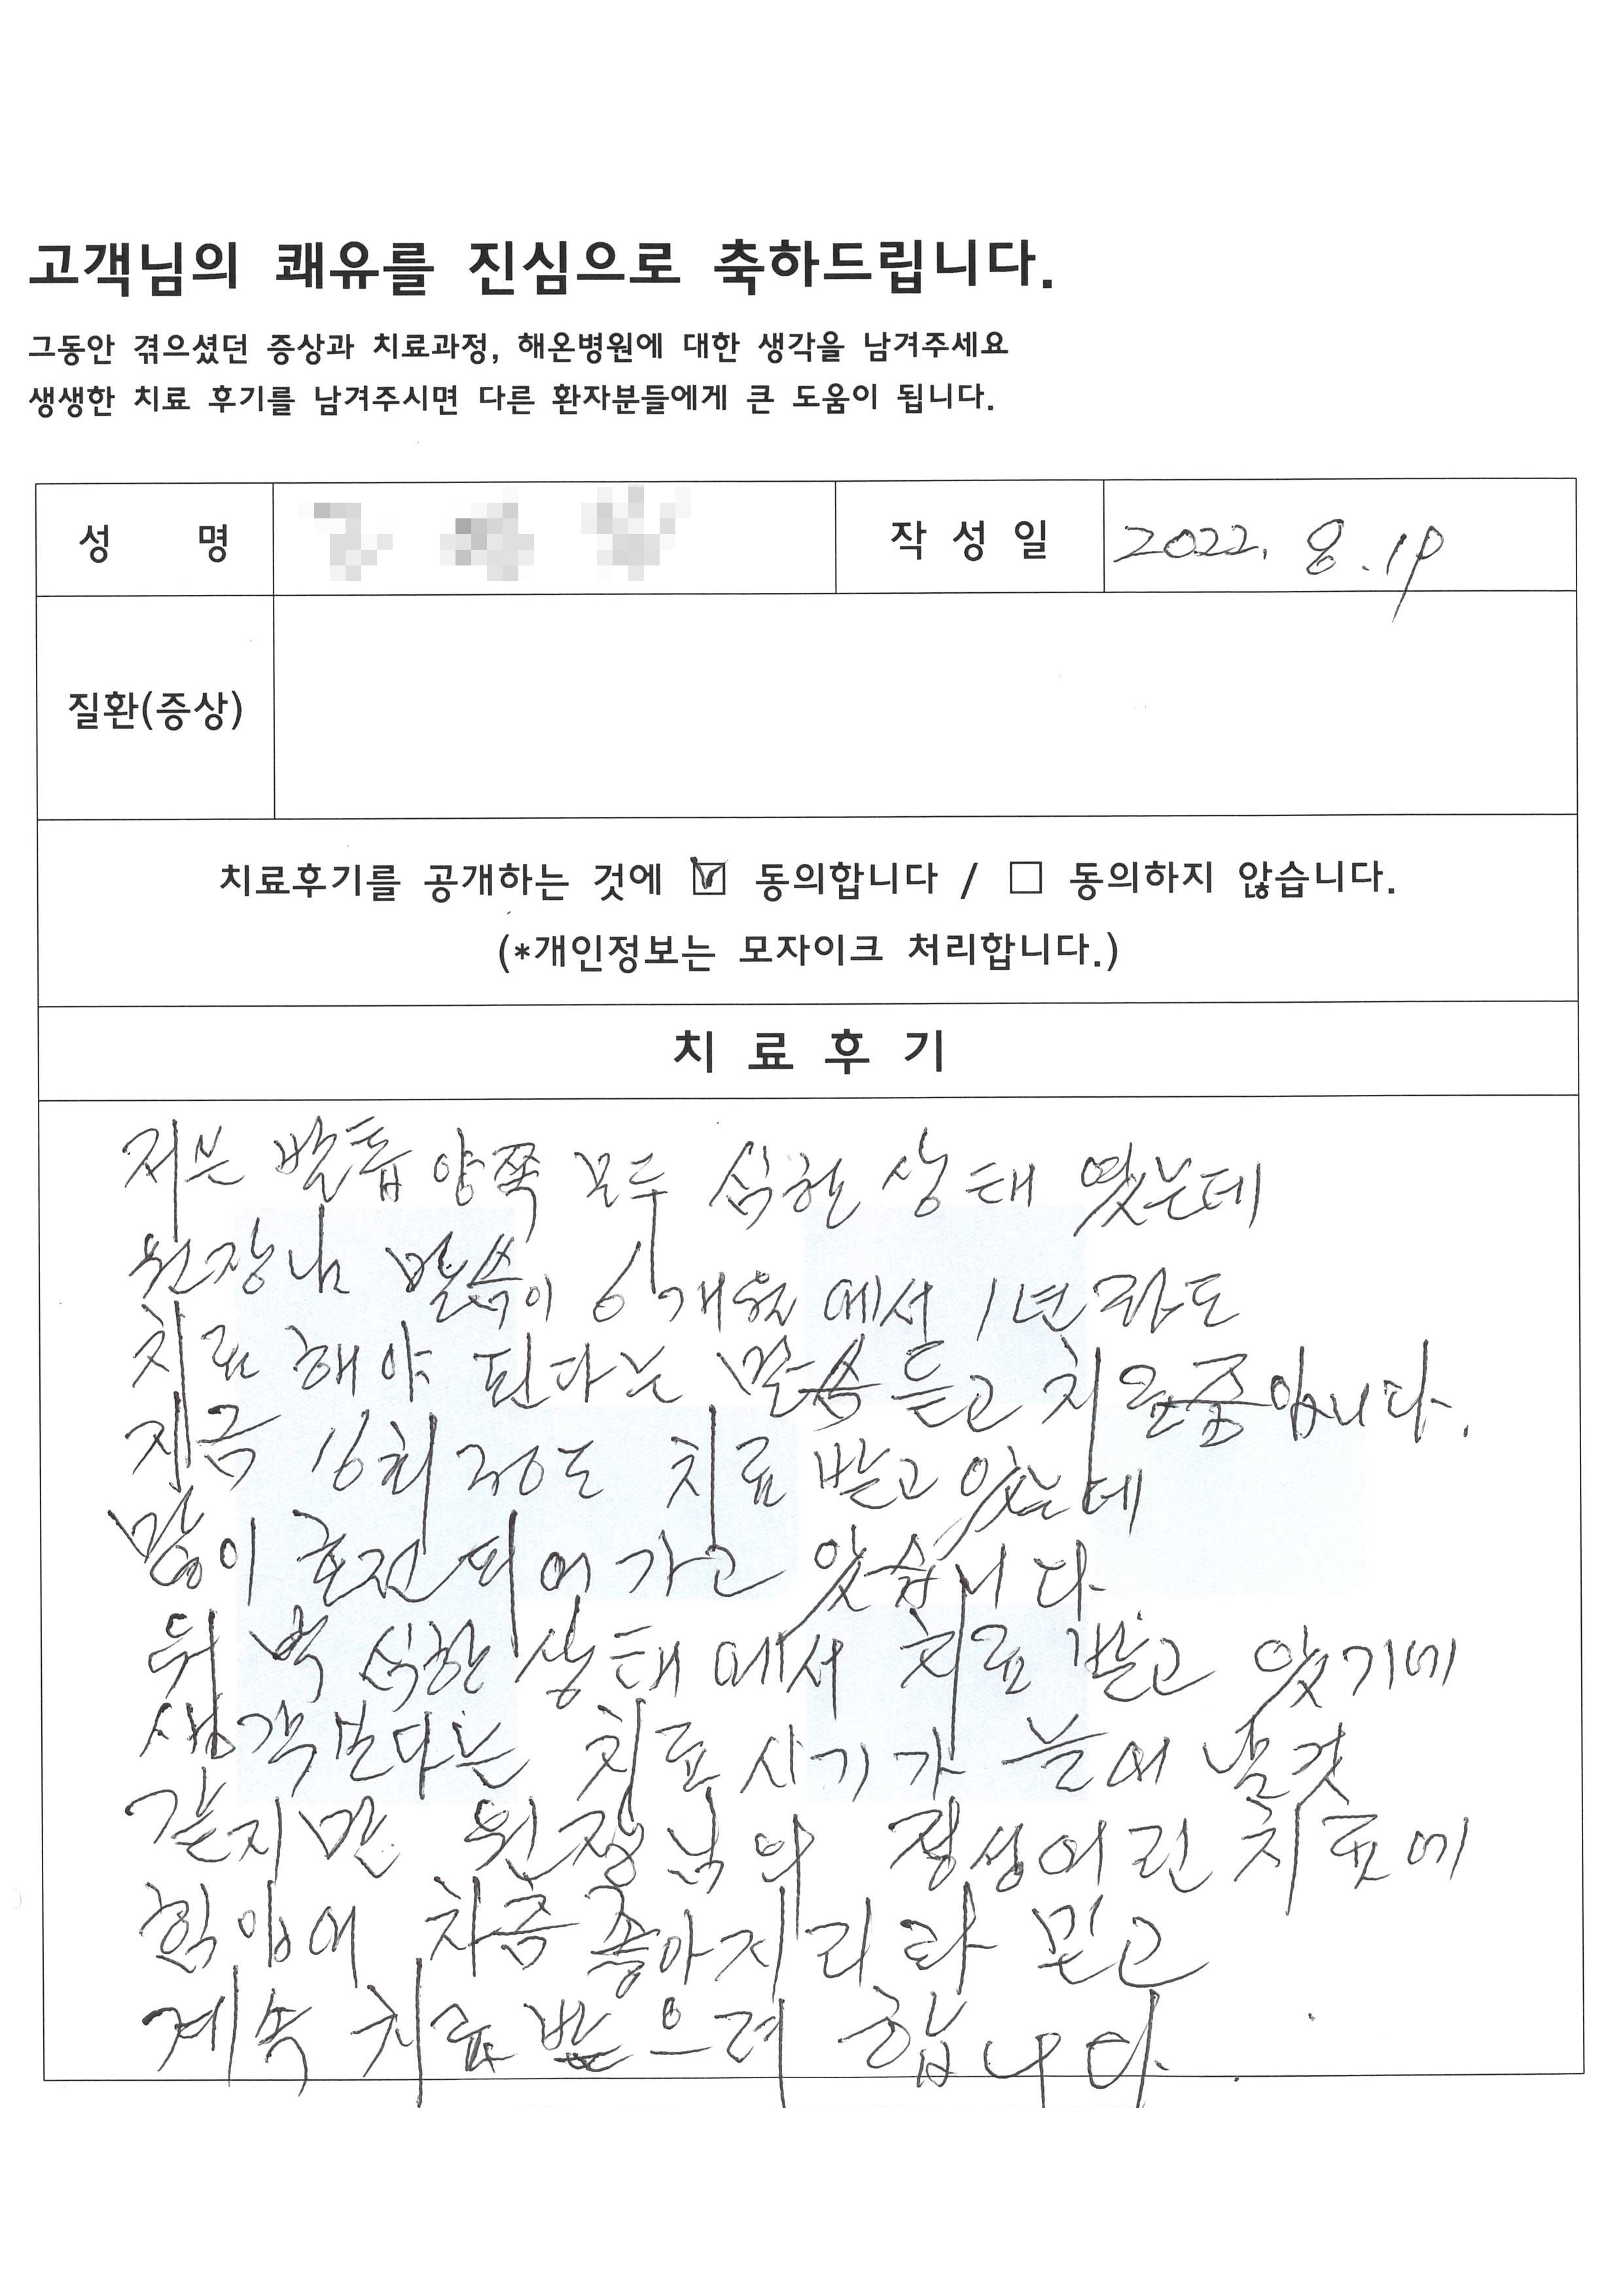 고객님의 쾌유를 진심으로 축하드립니다.
그동안 겪으셨던 증상과 치료과정, 해온병원에 대한 생각을 남겨주세요
생생한 치료 후기를 남겨주시면 다른 환자분들에게 큰 도움이 됩니다.
성 명
작 성 일 2022. 8. 19
질환(증상)
치료후기를 공개하는 것에 ☑ 동의합니다 / ☐ 동의하지 않습니다.
(*개인정보는 모자이크 처리합니다.)
치 료 후 기
저는 발톱 양쪽 모두 심한 상태 였는데
원장님 말씀이 6개월 에서 1년 정도
치료 해야 된다는 말씀 듣고 치료중입니다.
지금 16회 정도 치료 받고 있는데
많이 호전 되어 가고 있습니다.
워낙 심한 상태 에서 치료 받고 있기에
생각보다는 치료 시기가 늘어 날것
같지만 원장님의 정성어린 치료에
힘입어 차츰 좋아지리라 믿고
계속 치료 받으려 합니다.